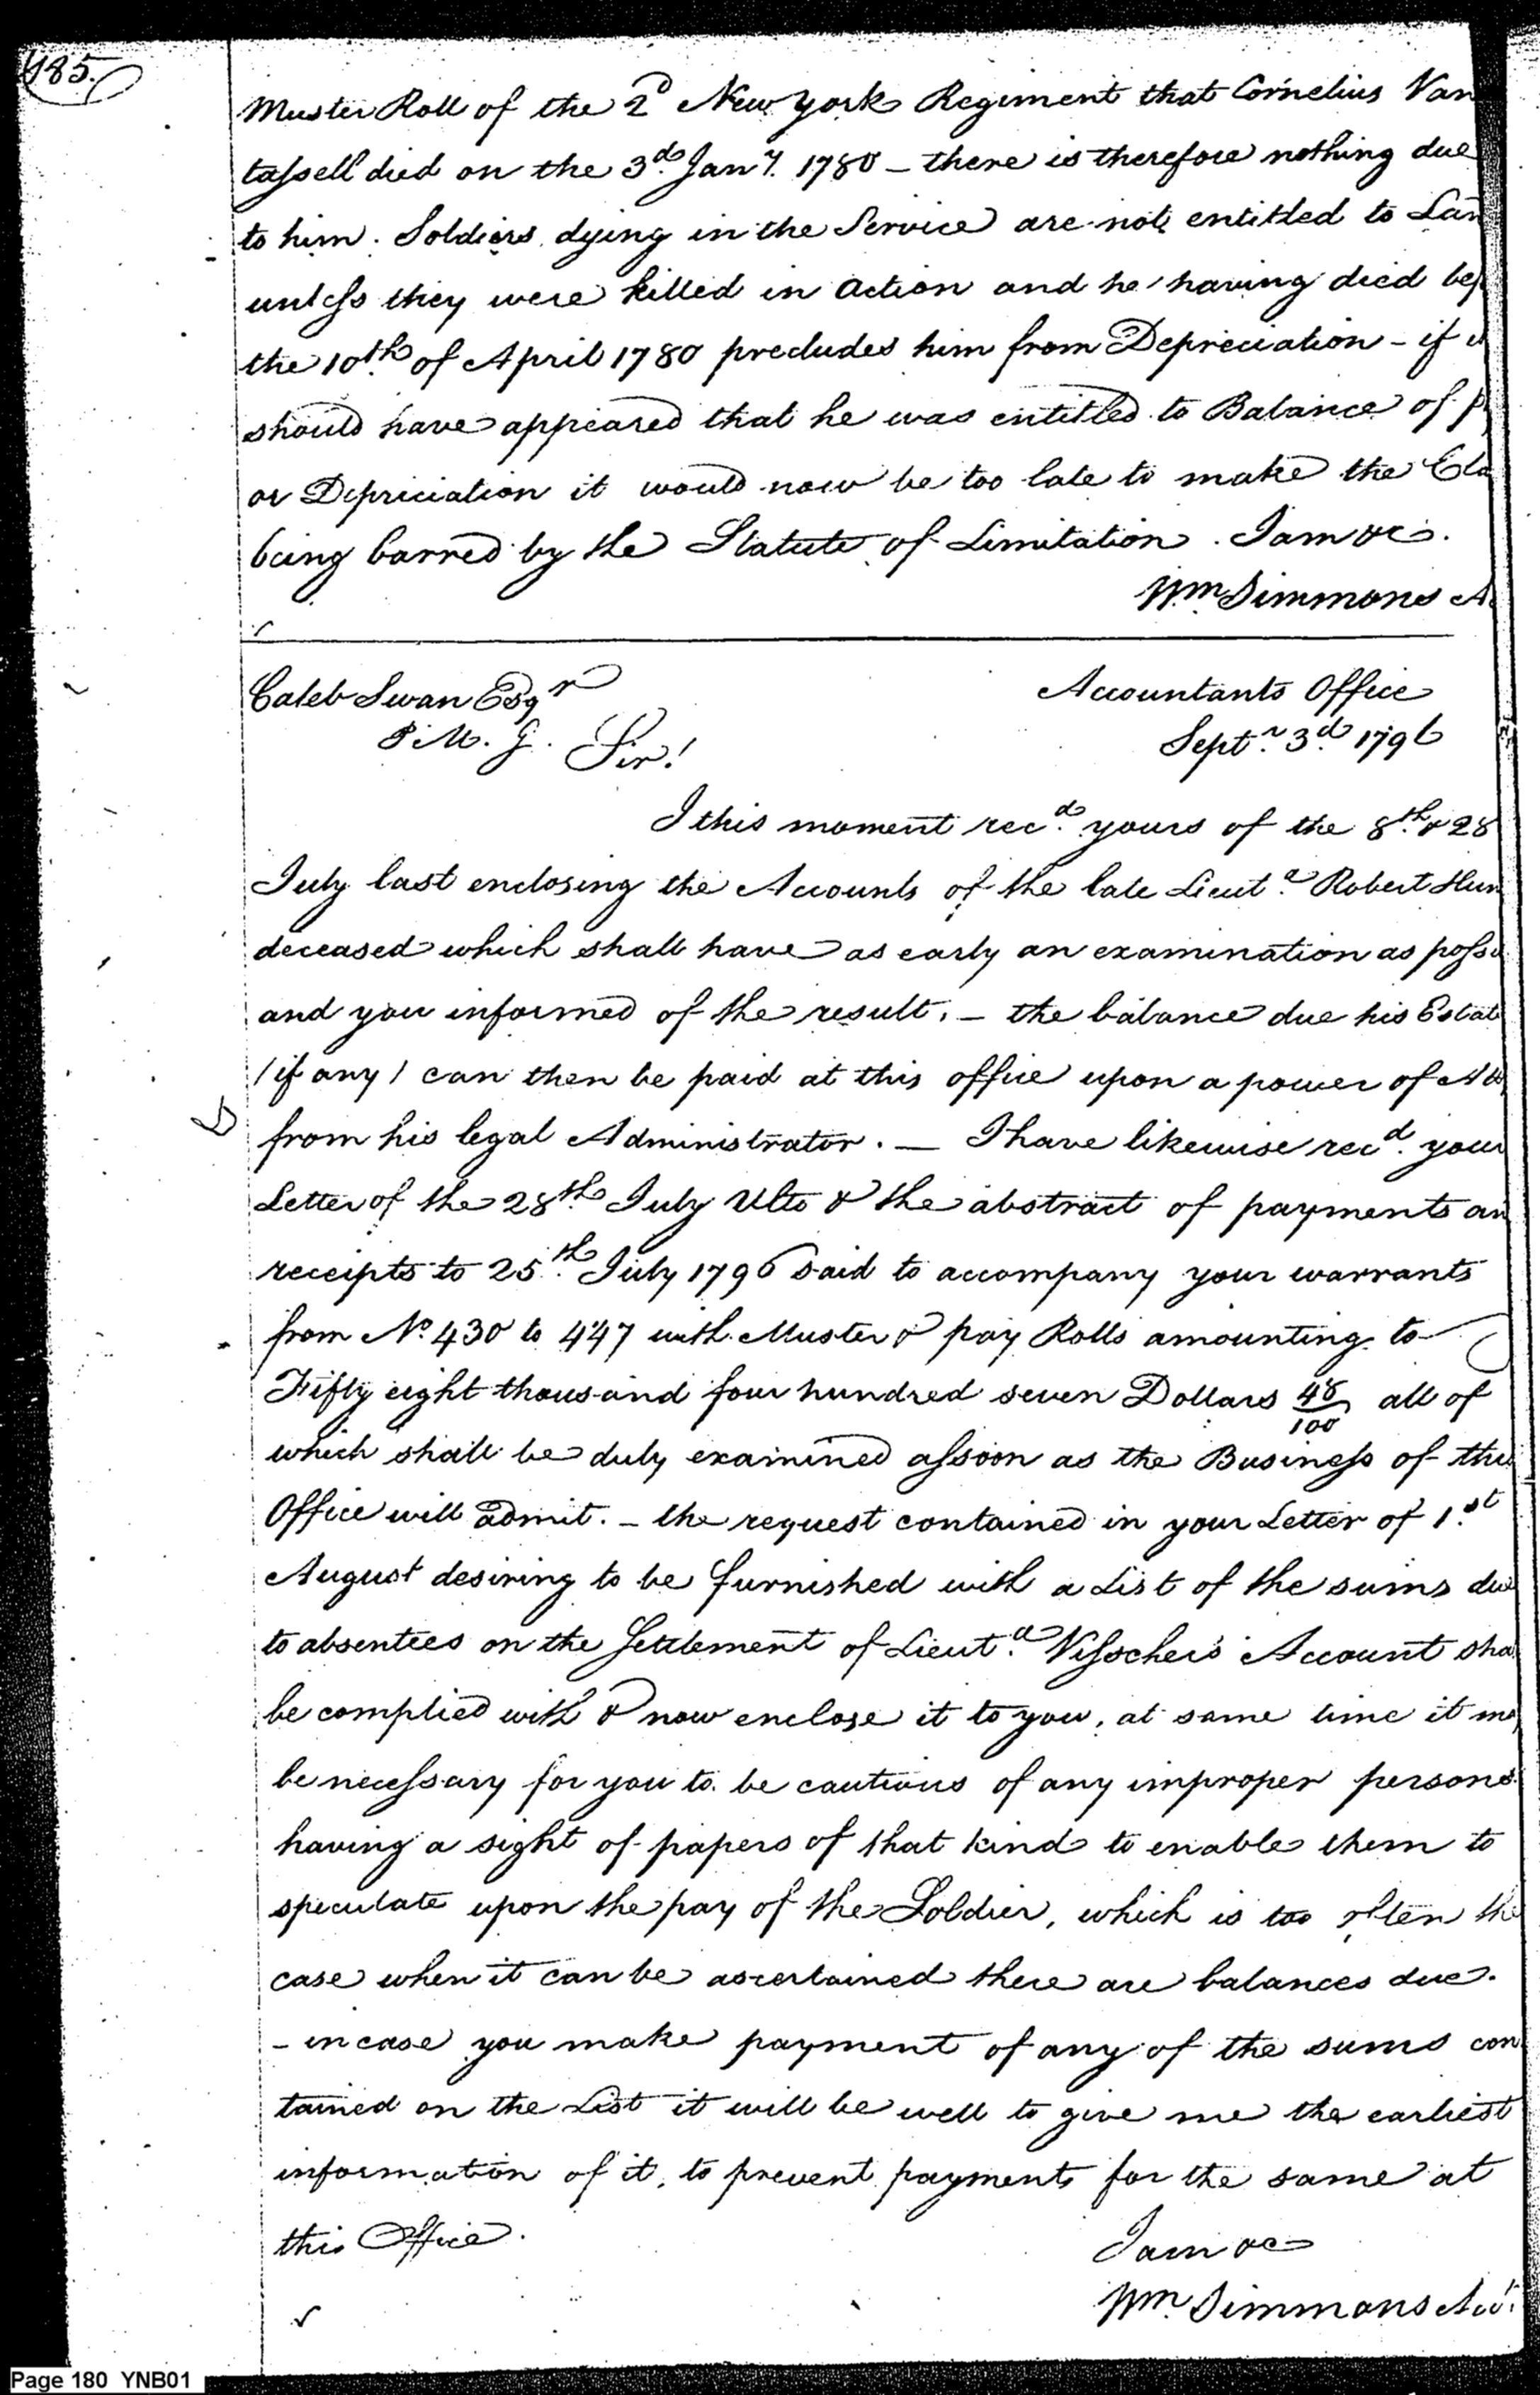 185.
Muster Roll of the 2d New York Regiment that Cornelius Van
tassell died on the 3d. Jany. 1780 – there is therefore nothing due
to him. Soldiers dying in the Service are not entitled to Lan
unless they were killed in action and he having died bef
the 10th of April 1780 precludes him from Depreciation – if
should have appeared that he was entitled to Balance of p
or Depreciation it would now be too late to make the Cla
being barred by the Statute of Limitation. I am &c.
Wm Simmons A
Caleb Swan Esqr Accountants Office
P. M. G. Sir! Septr. 3d. 1796
I this moment recd. yours of the 8th. & 28
July last enclosing the Accounts of the late Lieut. Robert Hun
deceased which shall have as early an examination as possi
and you informed of the result. – the balance due his Estate
/if any/ can then be paid at this office upon a power of Att
from his legal Administrator. — I have likewise recd. your
Letter of the 28th. July Ulto & the abstract of payments an
receipts to 25th. July 1796 said to accompany your warrants
from No. 430 to 447 with Muster & pay Rolls amounting to
Fifty eight thousand four hundred seven Dollars 48/100 all of
which shall be duly examined assoon as the Business of this
Office will admit. – the request contained in your Letter of 1st.
August desiring to be furnished with a List of the sums due
to absentees on the Settlement of Lieut. Visscher's Account sha
be complied with & now enclose it to you, at same time it may
be necessary for you to be cautious of any improper persons
having a sight of papers of that kind to enable them to
speculate upon the pay of the Soldier, which is too often the
case when it can be ascertained there are balances due.
– in case you make payment of any of the sums con
tained on the List it will be well to give me the earliest
information of it, to prevent payments for the same at
this Office. I am &c
Wm. Simmons Acct.
Page 180 YNB01